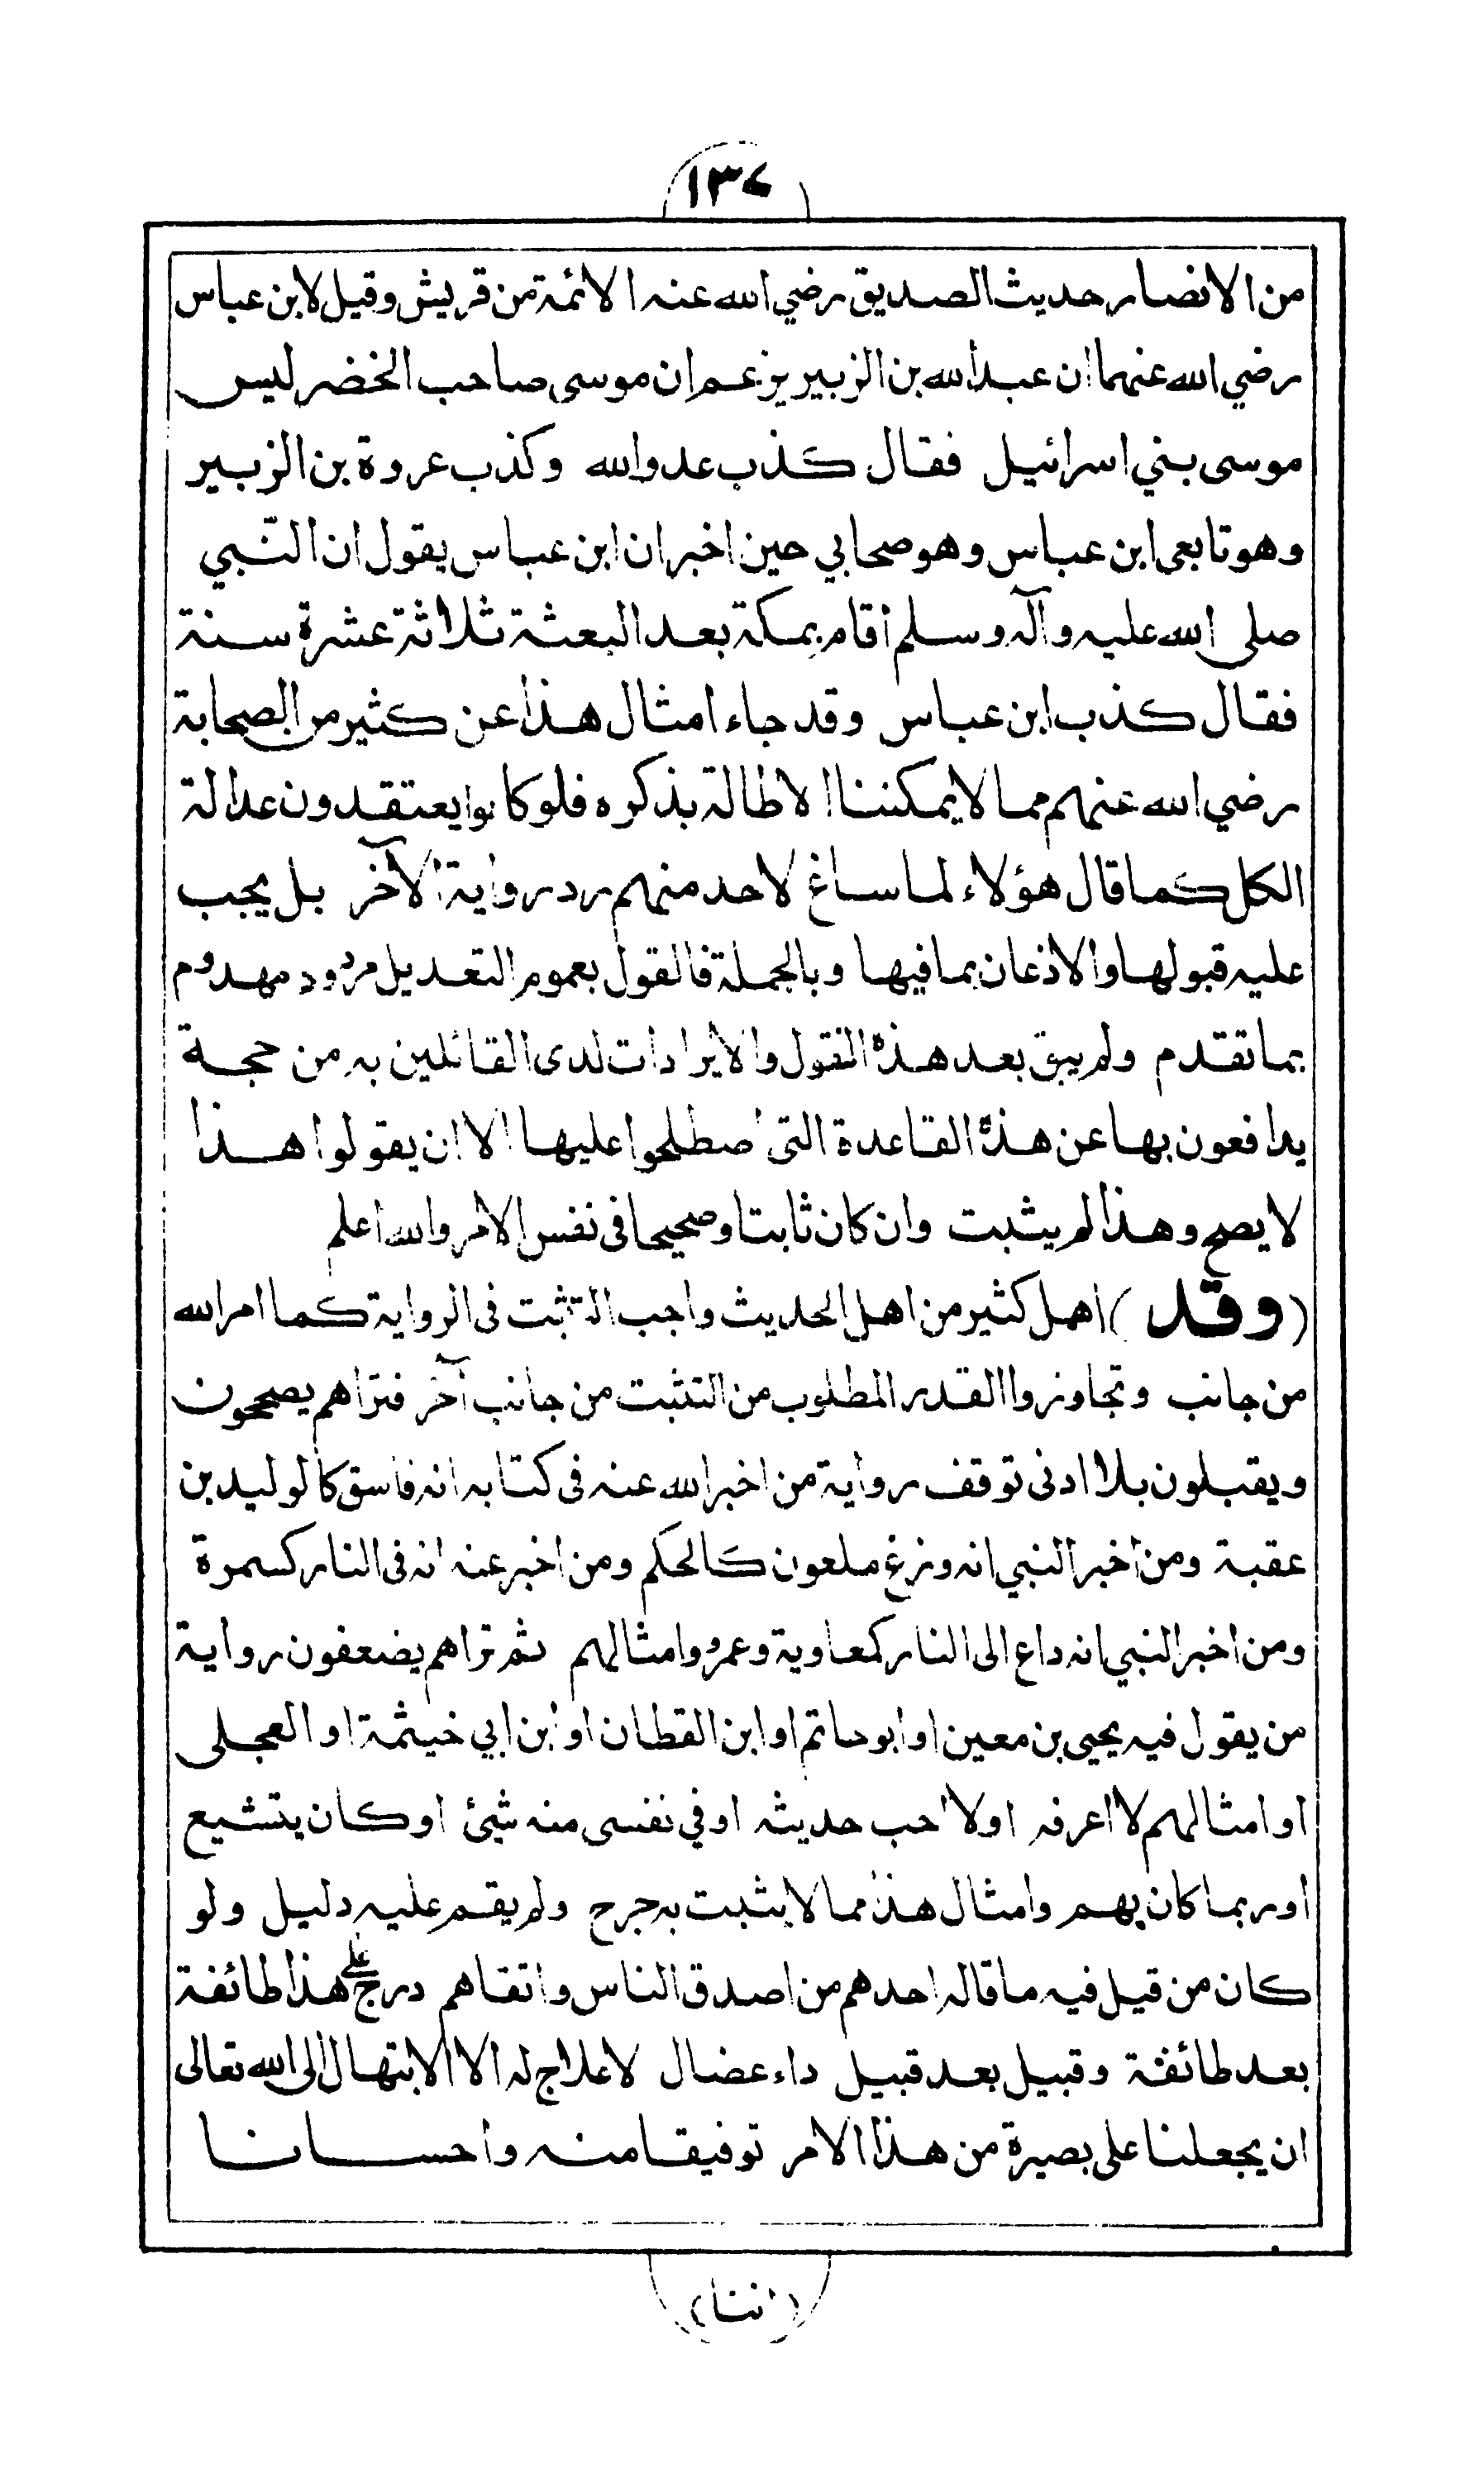 ١٣٧
من الانصار حديث الصديق رضي الله عنه الائمة من قريش وقيل لابن عباس
رضي الله عنهما ان عبد الله بن الزبير يزعم ان موسى صاحب الخضر ليس
موسى بني اسرائيل فقال كذب عدو الله وكذب عروة بن الزبير
وهو تابعى ابن عباس وهو صحابي حين اخبر ان ابن عباس يقول ان النّبي
صلى الله عليه وآله وسلم اقام بمكة بعد البعثة ثلاثة عشرة سنة
فقال كذب ابن عباس وقد جاء امثال هذا عن كثير من الصحابة
رضي الله عنهم مما لا يمكننا الاطالة بذكره فلو كانوا يعتقدون عدالة
الكل كما قال هؤلاء لما ساغ لاحد منهم رد رواية الآخر بل يجب
عليه قبولها والاذعان بما فيها وبالجملة فالقول بعموم التعديل مردود مهدوم
بما تقدم ولم يبق بعد هذه النقول والايرادات لدى القائلين به من حجة
يدافعون بها عن هذه القاعدة التى اصطلحوا عليها الا ان يقولوا هذا
لا يصح وهذا لم يثبت وان كان ثابتا وصحيحا فى نفس الامر والله اعلم
(وقد) اهمل كثير من اهل الحديث واجب التثبت فى الرواية كما امر الله
من جانب وتجاوزوا القدر المطلوب من التثبت من جانب آخر فتراهم يصححون
ويقبلون بلا ادنى توقف رواية من اخبر الله عنه فى كتابه انه فاسق كالوليد بن
عقبة ومن اخبر النبي انه وزغ ملعون كالحكم ومن اخبر عنه انه فى النار كسمرة
ومن اخبر النبي انه داع الى النار كمعاوية وعمرو وامثالهم ثم تراهم يضعفون رواية
من يقول فيه يحيى بن معين او ابو حاتم او ابن القطان او ابن ابي خيثمة او العجلى
او امثالهم لا اعرفه او لا احب حديثه او في نفسى منه شيئ او كان يتشيع
او ربما كان يهم وامثال هذا مما لا يثبت به جرح ولم يقم عليه دليل ولو
كان من قيل فيه ما قاله احدهم من اصدق الناس واتقاهم درج على هذا طائفة
بعد طائفة وقبيل بعد قبيل داء عضال لا علاج له الا الابتهال الى الله تعالى
ان يجعلنا على بصيرة من هذا الامر توفيقا منه واحسانا
(اننا)